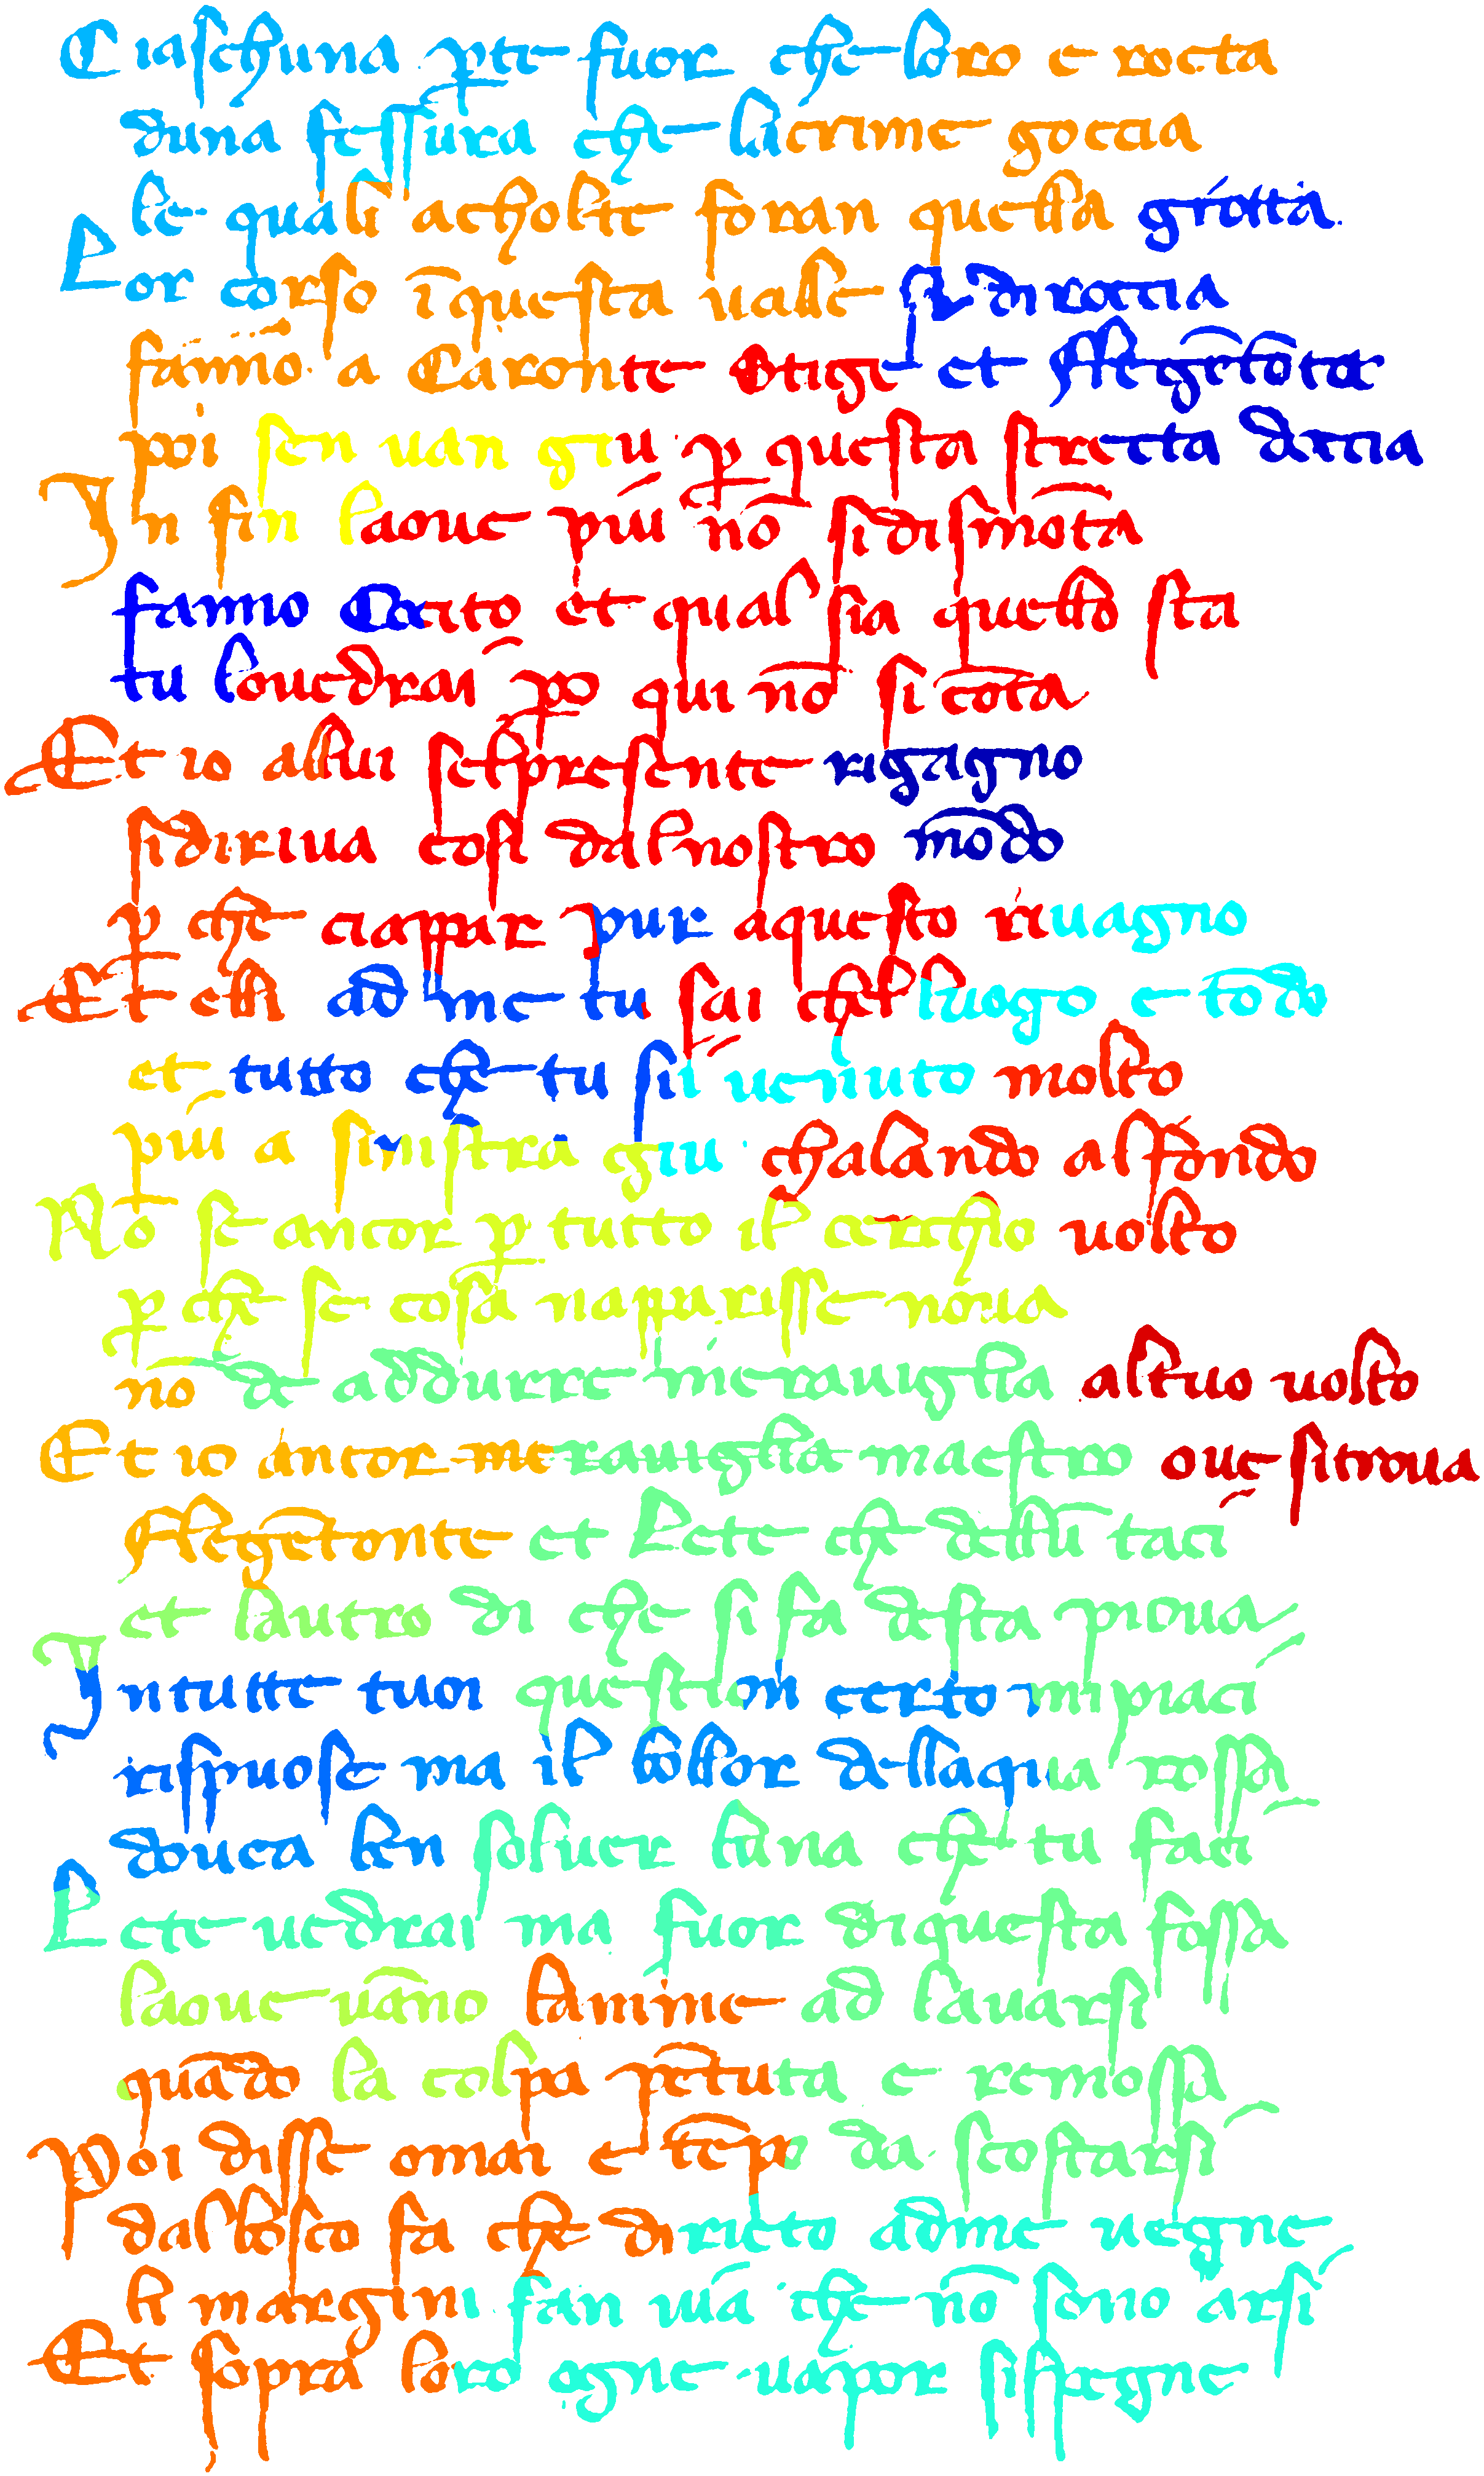 Ciaschuna pte fuor che loro e rocta
duna fessura che lacrime goccia
le quali acholte foran quella grotta.
Lor corso īquesta ualle si diroccia
fanno. a Caronte Stige et flegetōta
poi sen uan giu p questa stretta doccia
In fin laoue piú nō si dismōta
fanno Cocito et qual sia quello sta
tu louedrai po qui nō si cōta
Et io allui sel presente rigagno
sidiriua cosi dal nostro mōdo
p che ciappar pur aquesto riuagno
Et elli ad me tu sai chel luogo e tōdo
et tutto che tu sií uenuto molto
piú a sinistra giu chalando al fondo
Nō se ancor p tutto il cerchio uolto
p che se cosa napparisse noua
nō de addurre merauiglia al tuo uolto
Et io ancor merauiglia maestro oue sitroua
flegētonte et Lete che dellū taci
et lautro di che si fa desta pioua
In tutte tuoi question certo mi piaci
rispuose ma il bollor dellaqua rossa
douea ben soluer luna che tu faci
Lete uedrai ma fuor diquesta fossa
laoue uāno lanime ad lauarsi
quādo la colpa pētuta e remossa
Poi disse omai e tēpo da scostarsi
dal bosco fa che diricto adme uegne
li margini fan uia che nō sono arsi
Et sopra loro ogne uapor sispegne